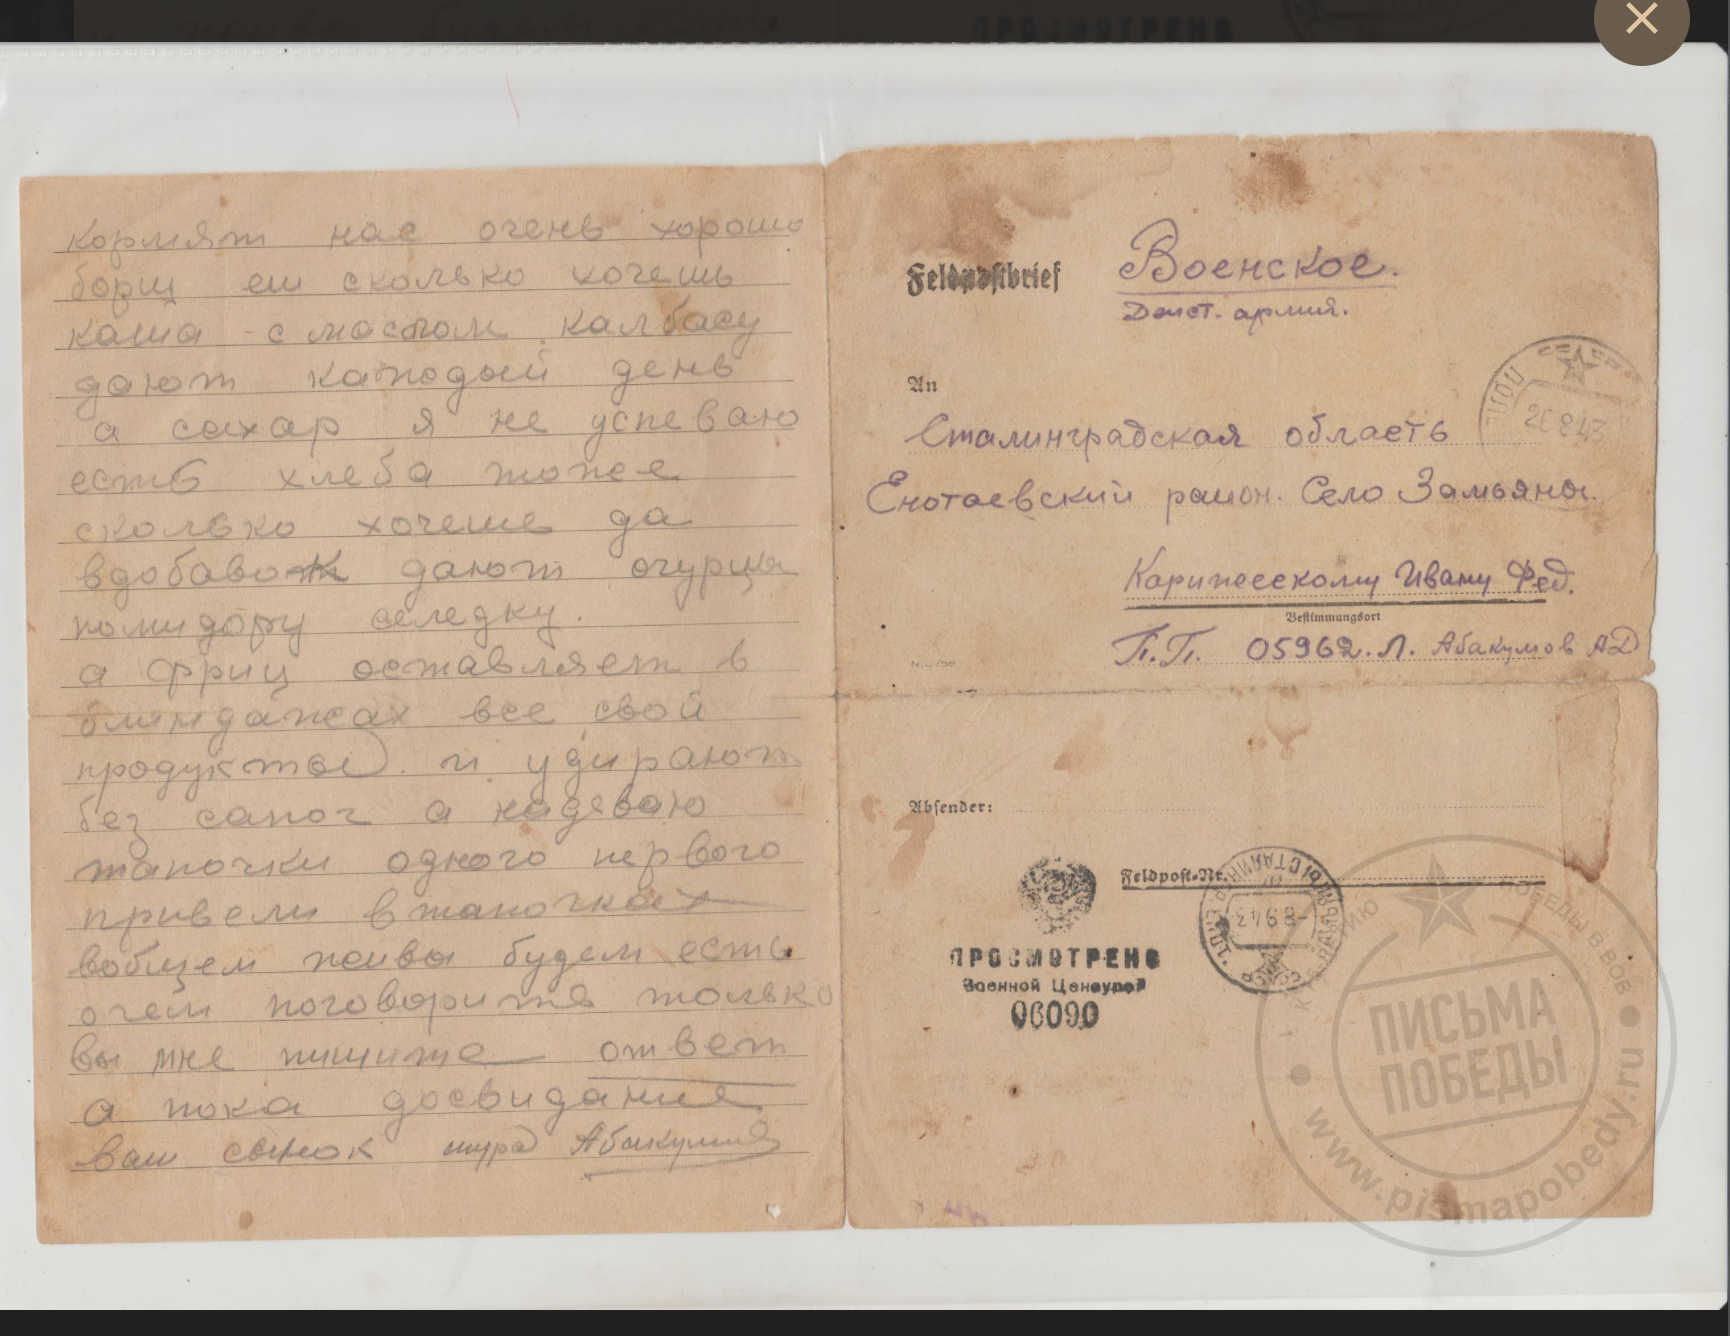 кормят нас очень хорошо
борщ еш сколько хочешь
каша - с маслом калбасу
дают каждый день
а сахар я не успеваю
есть хлеба тоже
сколько хочеше да
вдобавок дают огурцы
помидору селедку.
а фриц оставляет в
блиндажах все свой
продукты и удирают
без сапог а надеваю
тапочки одного первого
привели в тапочках
вобщем живы будем есть
очем поговорите только
вы мне пишите ответ
а пока досвидания
ваш сынок шура
Feldpostbrief
Военское.
Деист. армия.
An
26 8 43
Сталинградская область
Енотаевский раион. Село Замьяны.
Ивану Фед.
Bestimmungsort
П.П. 05962.Л. Абакумов АД
Absender:
Feldpost-Nr.
-8 9 43
ПРОСМОТРЕНО
Военной Цензурой
06090
ПОБЕДЫ В ВОВ
ПИСЬМА
ПОБЕДЫ
www.pismapobedy.ru